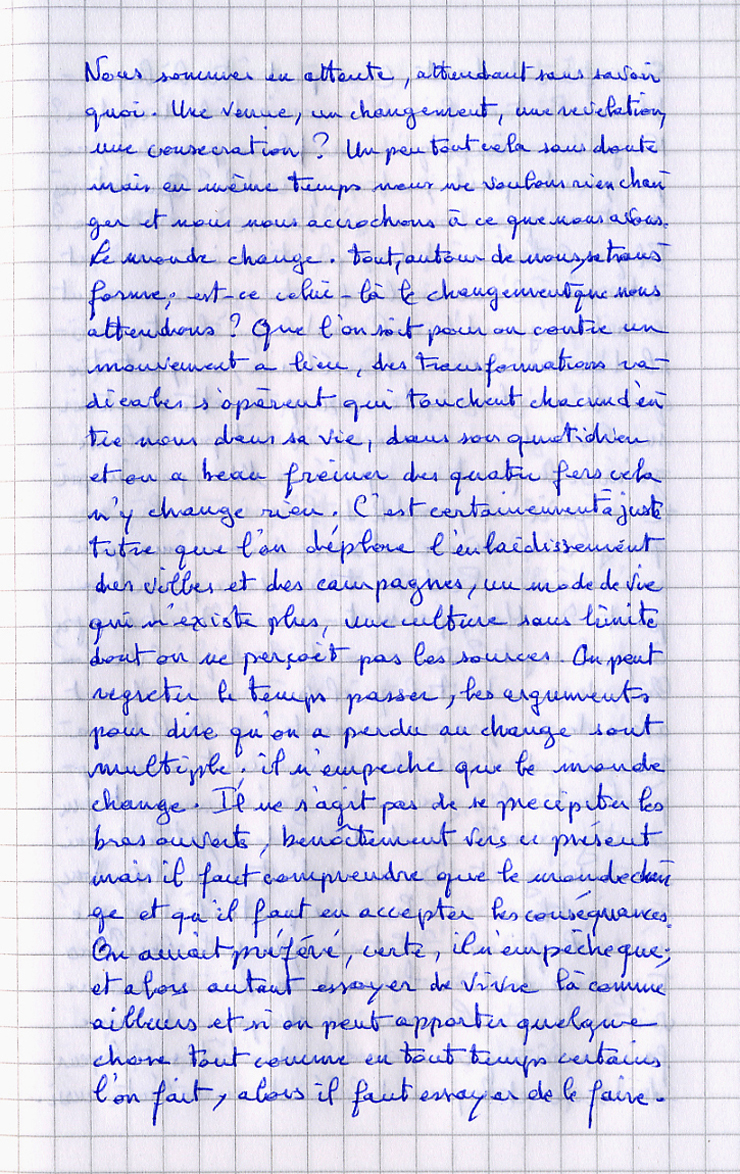 Nous sommes en attente, attendant sans savoir
quoi. Une venue, un changement, une revelation,
une consecration ? Un peu tout cela sans doute
mais en même temps nous ne voulons rien chan
ger et nous nous accrochons à ce que nous avons.
Le monde change. tout, autour de nous, se trans
forme ; est-ce celui-là le changement que nous
attendions ? Que l'on soit pour ou contre un
mouvement a lieu, des transformations ra-
dicales s'opèrent qui touchent chacun d'en
tre nous dans sa vie, dans son quotidien
et on a beau freiner des quatre fers cela
n'y change rien. C'est certainement à juste
titre que l'on déplore l'enlaidissement
des villes et des campagnes, un mode de vie
qui n'existe plus, une culture sans limite
dont on ne perçoit pas les sources. On peut
regretter le temps passer, les arguments
pour dire qu'on a perdu au change sont
multiple ; il n'empeche que le monde
change. Il ne s'agit pas de se precipiter les
bras ouverts, benoîtement vers ce présent
mais il faut comprendre que le monde chan
ge et qu'il faut en accepter les conséquances.
On aurait préféré, certe, il n'empêche que ;
et alors autant essayer de vivre là comme
ailleurs et si on peut apporter quelque
chose tout comme en tout temps certains
l'on fait, alors il faut essayer de le faire.